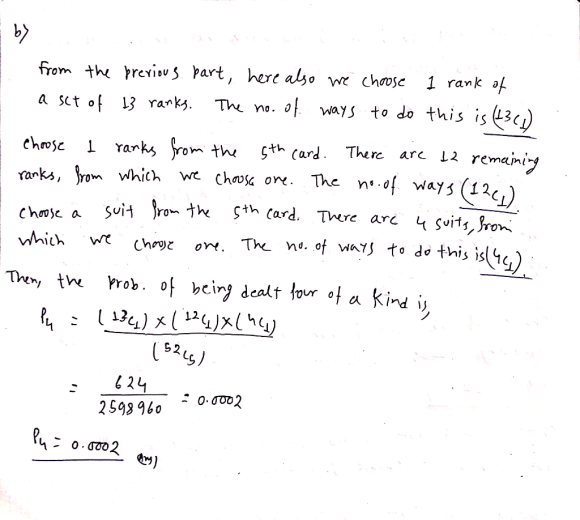 b)
From the previous part, here also we choose 1 rank of
a set of 13 ranks. The no. of ways to do this is (13C1)
Choose 1 ranks from the 5th card. There are 12 remaining
ranks, from which we choose one. The no. of ways (12C1)
Choose a suit from the 5th card. There are 4 suits, from
which we choose one. The no. of ways to do this is (4C1).
Then, the prob. of being dealt four of a kind is,
P4 = (13C1) x (12C1) x (4C1)
(52C5)
= 624
2598960 = 0.0002
P4 = 0.0002 Ans)